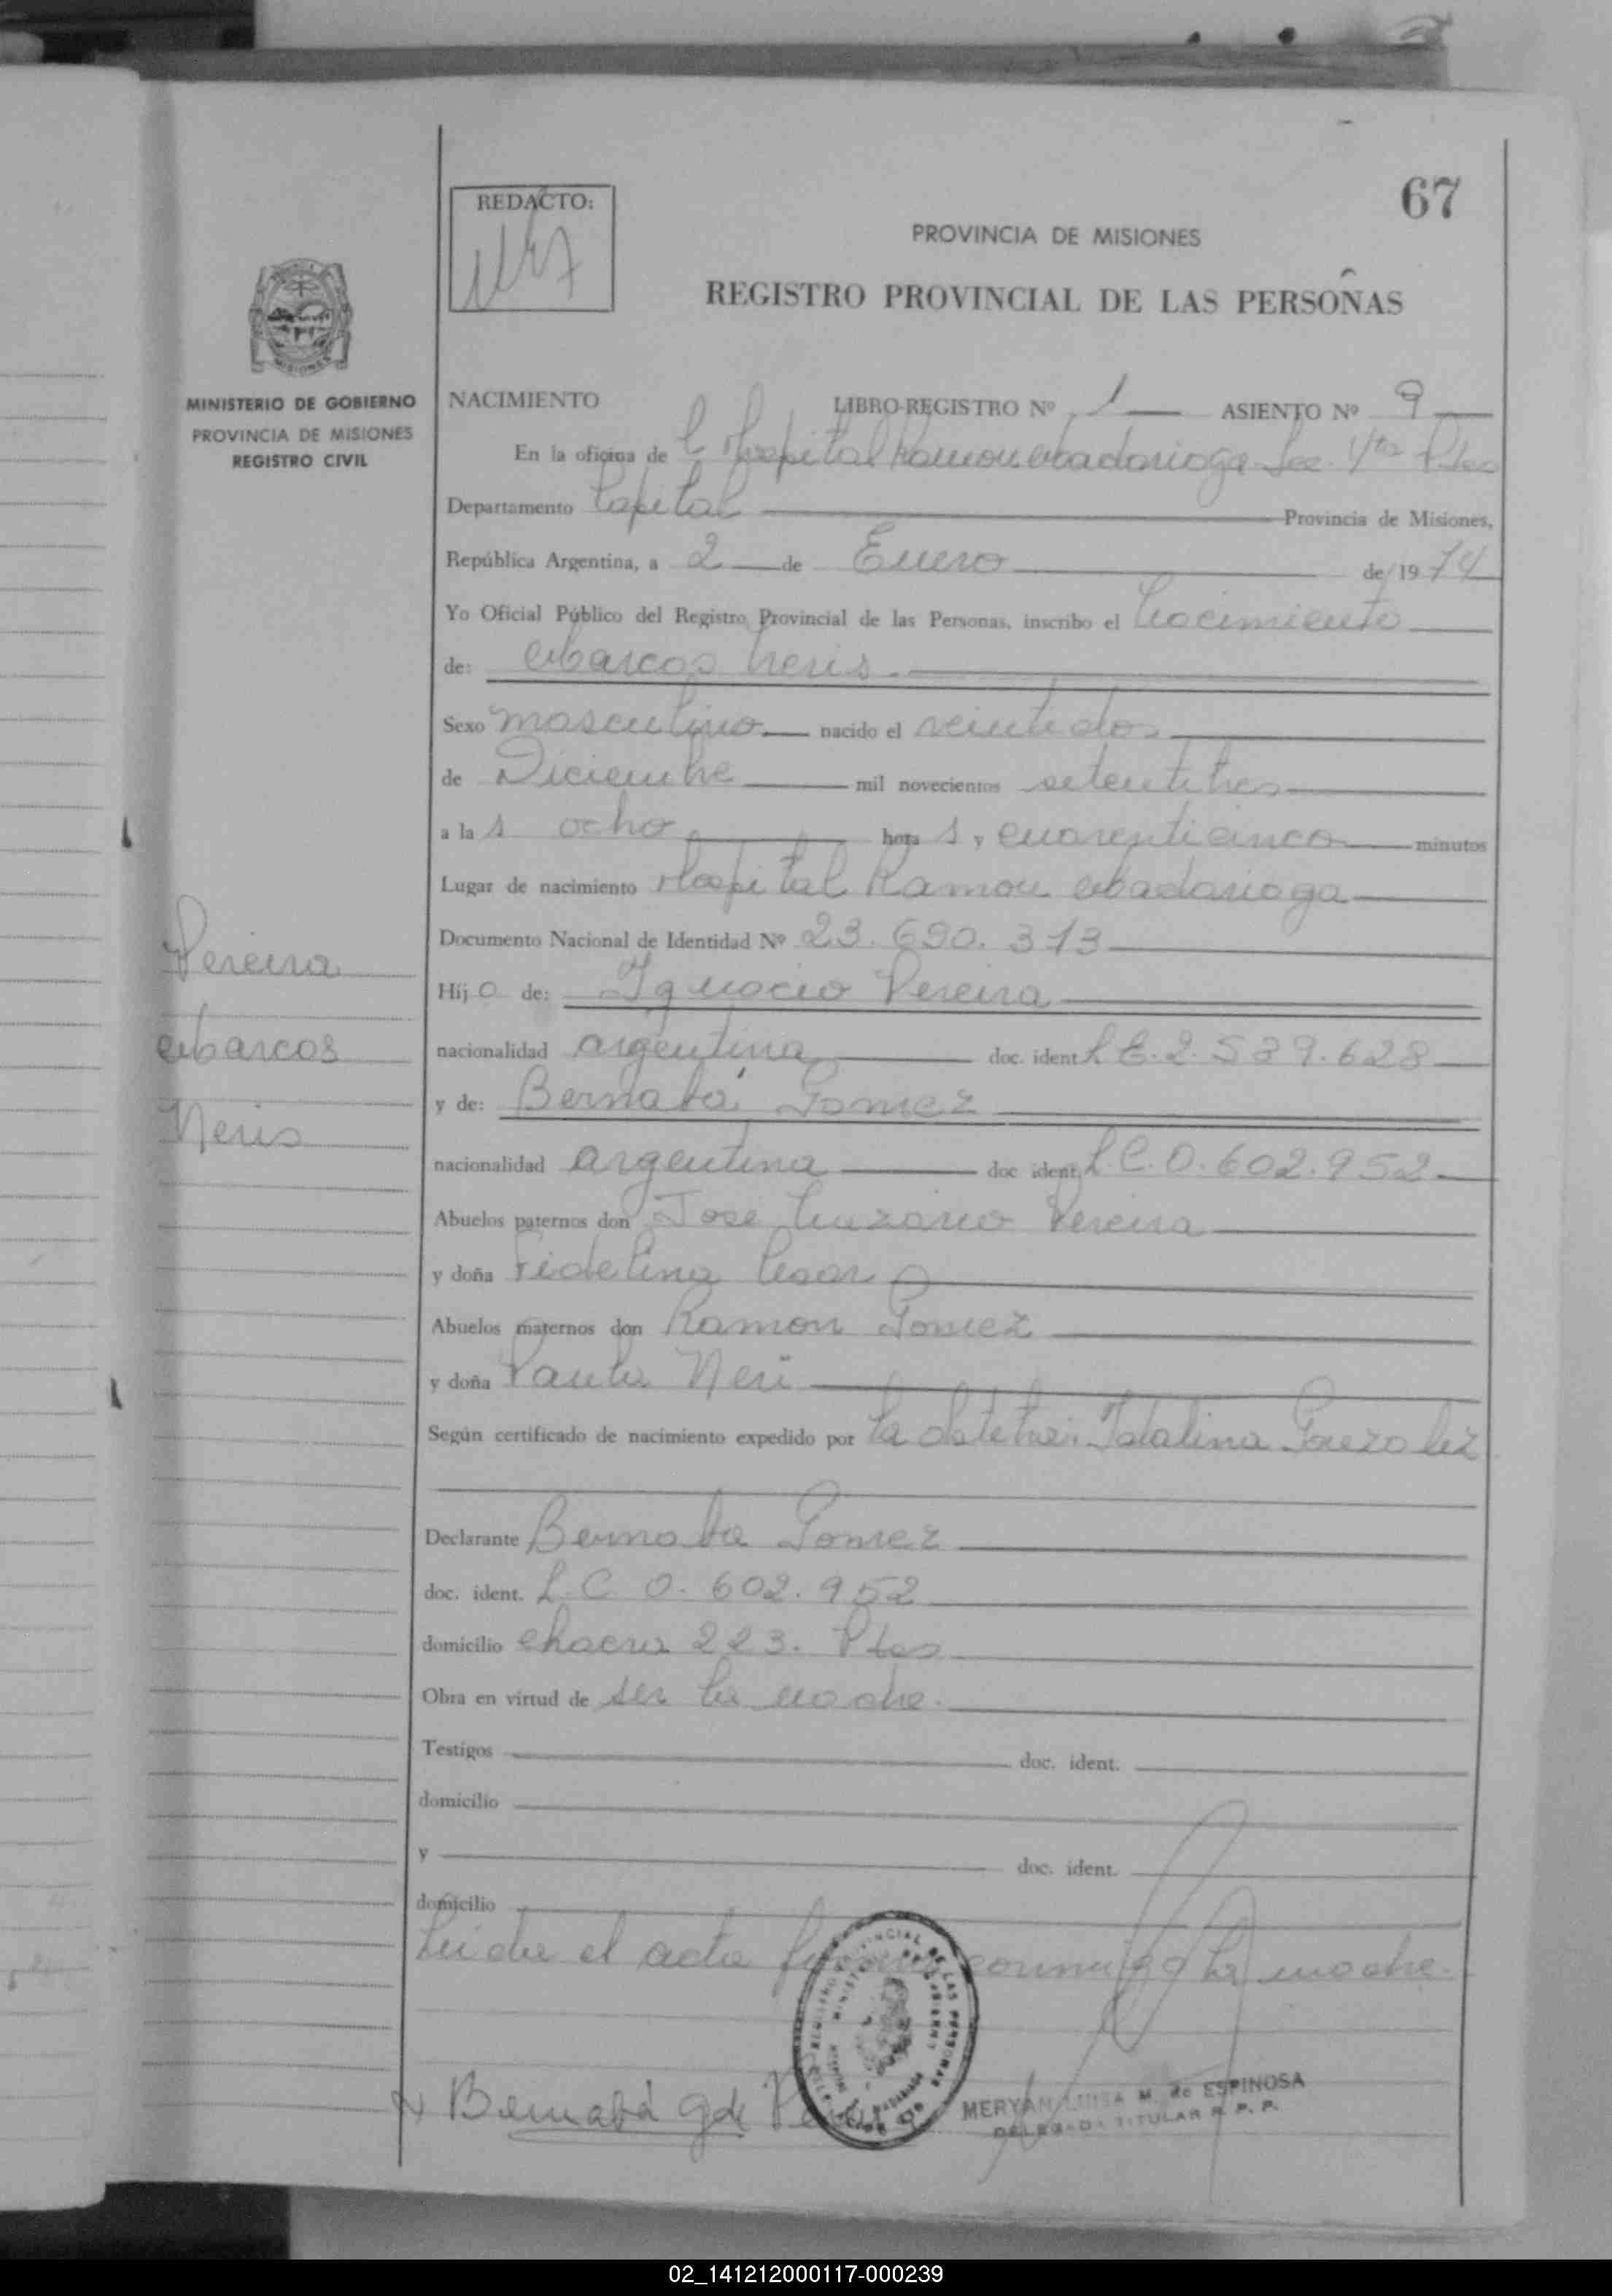 67
REDACTO:
PROVINCIA DE MISIONES
REGISTRO PROVINCIAL DE LAS PERSONAS
MISIONES
MINISTERIO DE GOBIERNO
PROVINCIA DE MISIONES
REGISTRO CIVIL
NACIMIENTO LIBRO-REGISTRO Nº 1 ASIENTO Nº 9
En la oficina de Hospital Ramon Madariaga Sec. Ptas
Departamento Capital Provincia de Misiones,
República Argentina, a 2 de Enero de 1974
Yo Oficial Público del Registro Provincial de las Personas, inscribo el Nacimiento
de: Marcos Neris
Sexo masculino nacido el veintidos
de Diciembre mil novecientos setentitres
a las ocho horas y cuarenticinco minutos
Lugar de nacimiento Hospital Ramon Madariaga
Documento Nacional de Identidad Nº 23.690.313
Pereira
Marcos
Neris
Hijo de: Ignacio Pereira
nacionalidad argentina doc. ident L.E. 2.539.628
y de: Bernabá Gomez
nacionalidad argentina doc ident. L.C. 0.602.952
Abuelos paternos don Jose Pereira
y doña Fidelina
Abuelos maternos don Ramon Gomez
y doña Paula Neri
Según certificado de nacimiento expedido por la obstetriz Gonzalez
Declarante Bernaba Gomez
doc. ident. L.C. 0.602.952
domicilio chacra 223. Ptas
Obra en virtud de ser la madre.
Testigos doc. ident.
domicilio
y doc. ident.
domicilio
Leida el acta firma conmigo la madre.
Bernabá G de
MERYAN LUISA M. de ESPINOSA
DELEGADA TITULAR R. P. P.
02_141212000117-000239